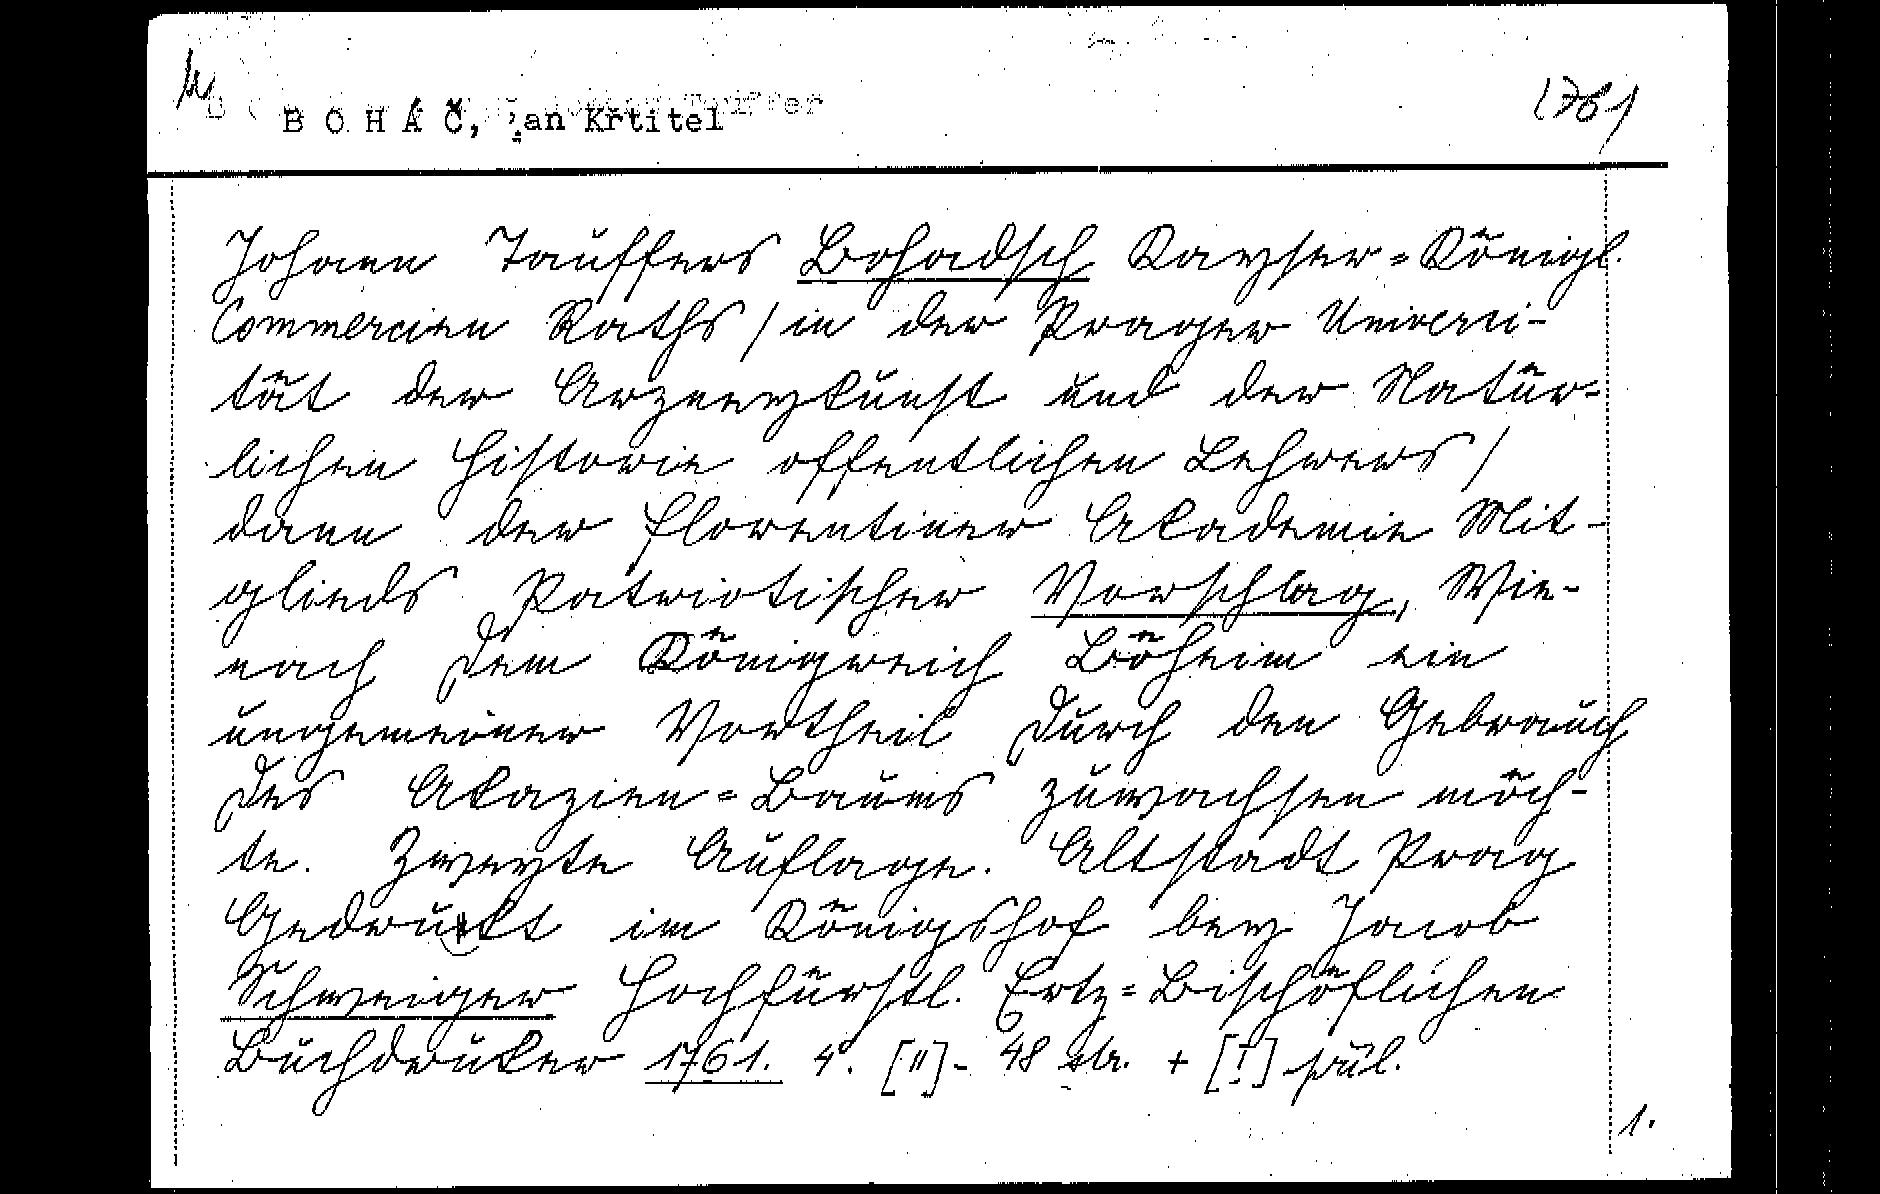 B O H Á Č, Jan Křtitel
1761
Johann Tauffers Bohadsch Kayser=Königl.
Commercien Raths / in der Prager Universi-
tät der Arzneykunst und der Natür-
lichen Historie offentlichen Lehrers /
dann der florentiner Akademie Mit-
glieds Patriotischer Vorschlag, Wie-
nach dem Königreich Böheim ein
ungemeiner Vortheil durch den Gebrauch
des Akazien=Baums zuwachsen möch-
te. Zweyte Auflage. Altstadt Prag
Gedrukt im Königshof bey Jacob
Schweiger Hochfürstl. Ertz=Bischöflichen
Buchdruker 1761. 4°. [II]- 48 str. + [I] příl.
1.